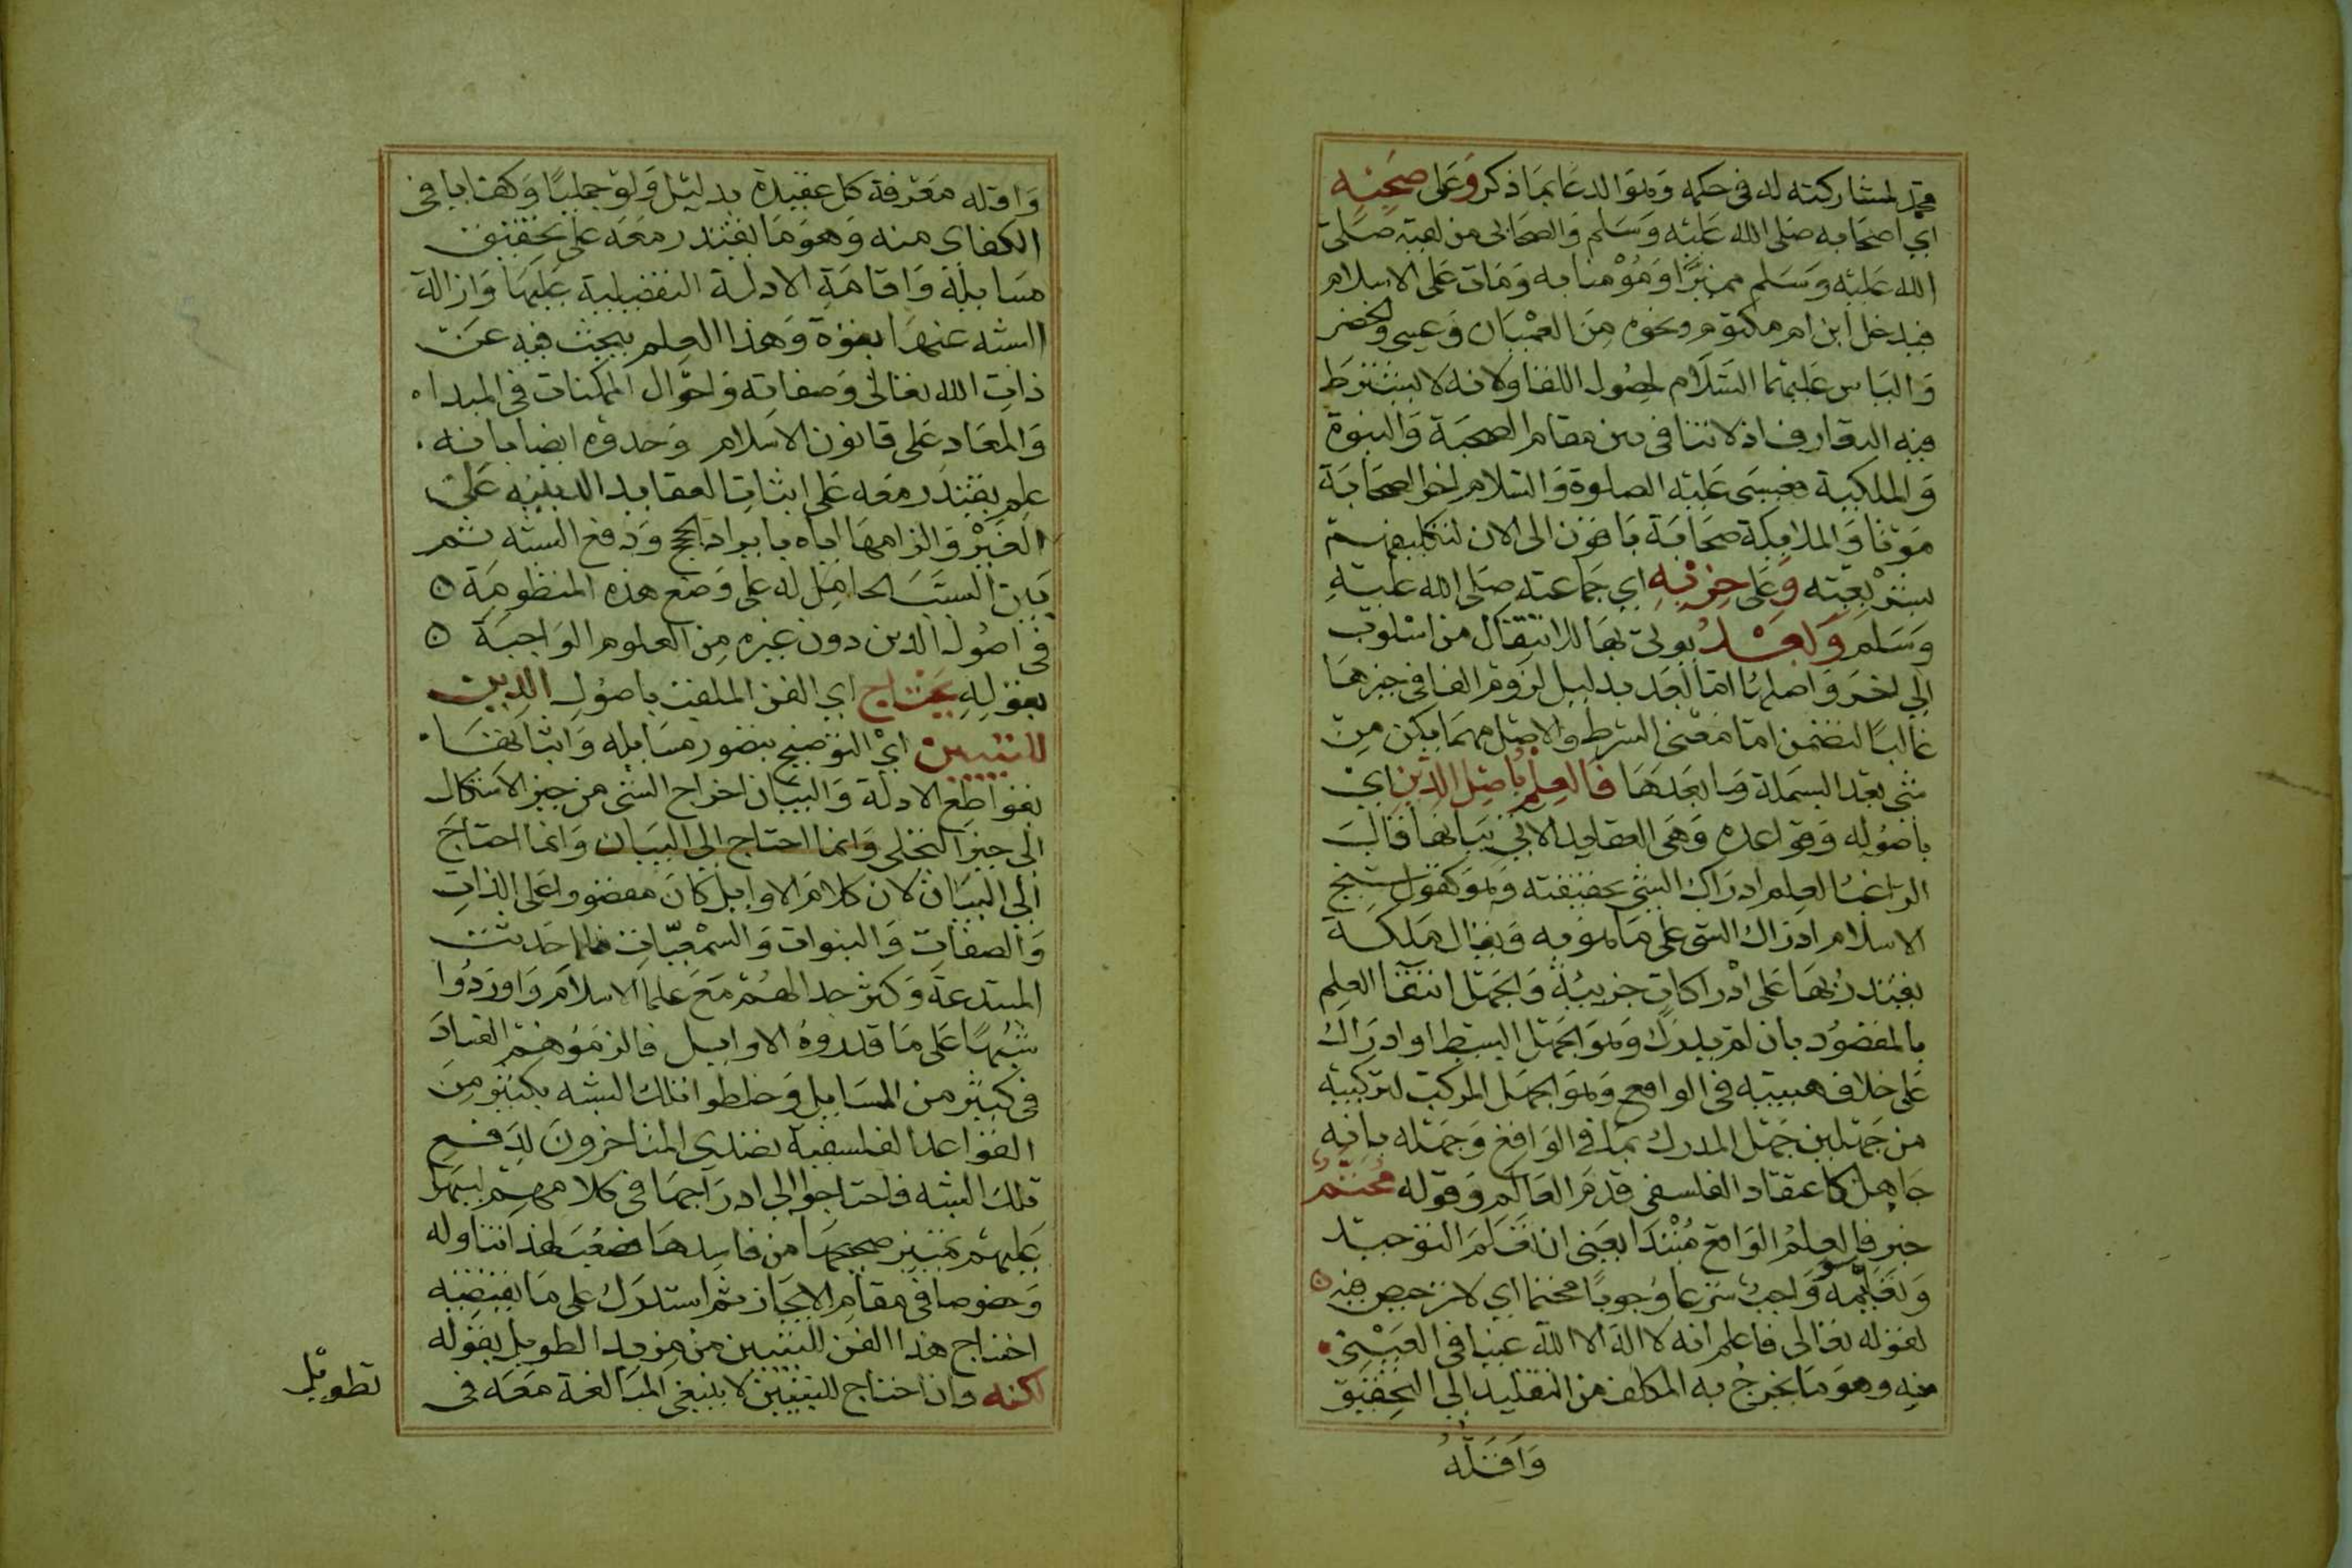 محمد لمشاركته له في حكمه وهو الدعا بما ذكر وعلى صحبه
اي اصحابه صلى الله عليه وسلم والصحابي من لقيه صلى
الله عليه وسلم مميزا ومؤمنا به ومات على الاسلام
فيدخل ابن ام مكتوم ونحوه من العميان وعيسى والخضر
والياس عليهما السلام لحصول اللقا ولانه لا يشترط
فيه التعارف اذ لا تنافي بين مقام الصحبة والنبوة
والملكية فعيسى عليه الصلوة والسلام اخر الصحابة
موتا والملايكة صحابة باقون الى الان لتكليفهم
بشريعته وعلى حزبه اي جماعته صلى الله عليه
وسلم وبعد يوتى بها للانتقال من اسلوب
الي اخر واصلها اما بعد بدليل لزوم الفا في حيزها
غالبا لتضمن اما معنى الشرط والاصل مهما يكن من
شي بعد البسملة وما بعدها فالعلم باصل الدين اي
باصوله وقواعده وهي العقايد الاتي بيانها قال
الراغب العلم ادراك الشي بحقيقته وهو كقول شيخ
الاسلام ادراك الشي على ما هو به ويقال ملكة
يقتدر بها على ادراكات جزيية والجهل انتفا العلم
بالمقصود بان لم يدرك وهو الجهل البسيط او ادراك
على خلاف هييته في الواقع وهو الجهل المركب لتركبه
من جهلين جهل المدرك بما في الواقع وجهله بانه
جاهل كاعتقاد الفلسفي قدم العالم وقوله محتم
خبر فالعلم الواقع مبتدا يعني ان تعلم التوحيد
وتعليمه واجب شرعا وجوبا محتما اي لا ترخيص فيه
لقوله تعالى فاعلم انه لا اله الا الله عينيا في العيني
منه وهو ما يخرج به المكلف من التقليد الي التحقيق
واقله
واقله معرفة كل عقيدة بدليل ولو جمليا وكفاييا في
الكفاي منه وهو ما يقتدر معه على تحقيق
مسايله واقامة الادلة التفصيلية عليها وازالة
الشبه عنها بقوة وهذا العلم يبحث فيه عن
ذات الله تعالى وصفاته واحوال الممكنات في المبدا
والمعاد على قانون الاسلام وحدوه ايضا بانه
علم يقتدر معه على اثبات العقايد الدينيه على
الغير والزامها اياه بايراد الحجج ودفع الشبه ثم
بين السبب الحامل له على وضع هذه المنظومة
في اصول الدين دون غيره من العلوم الواجبة
بقوله يحتاج اي الفن الملقب باصول الدين
للتبيين اي التوضيح بتصور مسايله واثباتها
بقواطع الادلة والبيان اخراج الشي من حيز الاشكال
الى حيز التجلي وانما احتاج الى البيان وانما احتاج
الي البيان لان كلام الاوايل كان مقصورا على الذات
والصفات والنبوات والسمعيات فلما حدثت
المبتدعة وكثر جدالهم مع علما الاسلام واوردوا
شبها على ما قرروه الاوايل فالزموهم الفساد
في كثير من المسايل وخلطوا تلك الشبه بكثير من
القواعد الفلسفية تصدى المتاخرون لدفع
تلك الشبه فاحتاجوا الى ادراجها في كلامهم ليسهل
عليهم تمييز صحيحها من فاسدها فصعب لهذا تناوله
وخصوصا في مقام الايجاز ثم استدرك على ما يقتضيه
احتياج هذا الفن للتبيين من مزيد التطويل بقوله
لكنه وان احتاج للتبيين لا ينبغي المبالغة معه في
تطويل